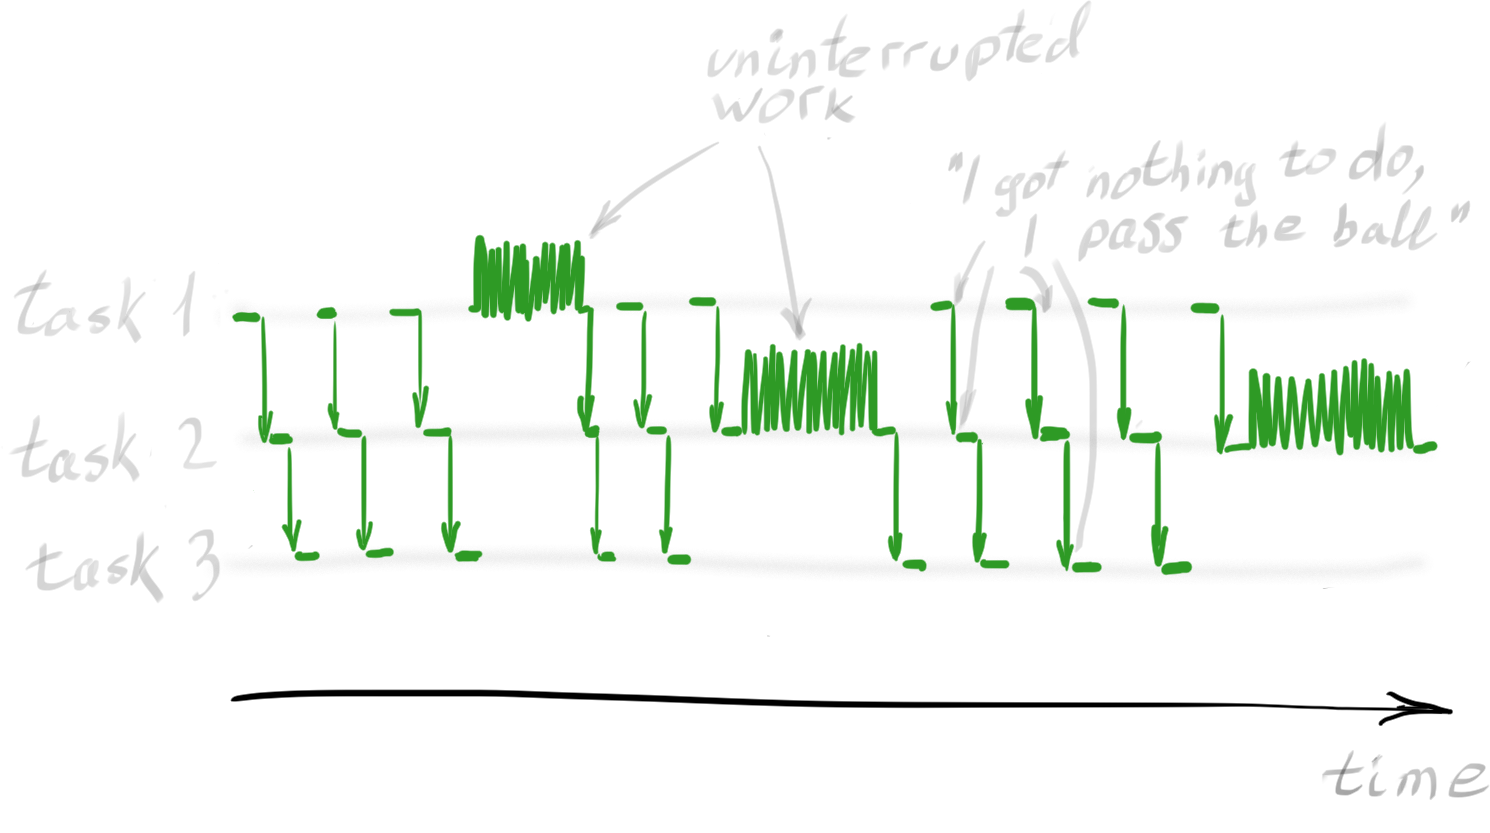 uninterrupted
work
"I got nothing to do,
I pass the ball"
task 1
task 2
task 3
time